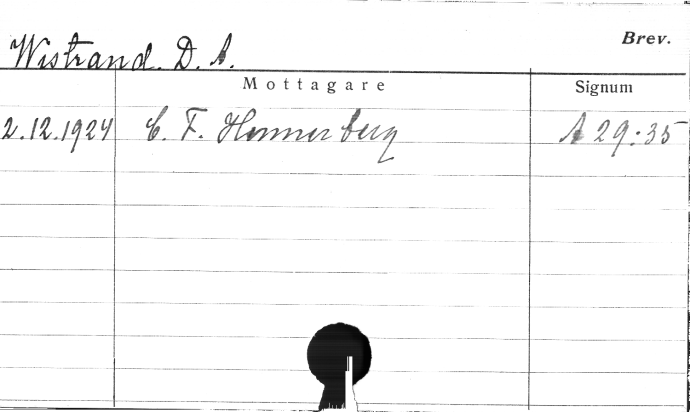 Wistrand. D. A.
Brev.
Mottagare
Signum
2.12.1924 C. F. Hennerberg A 29:35